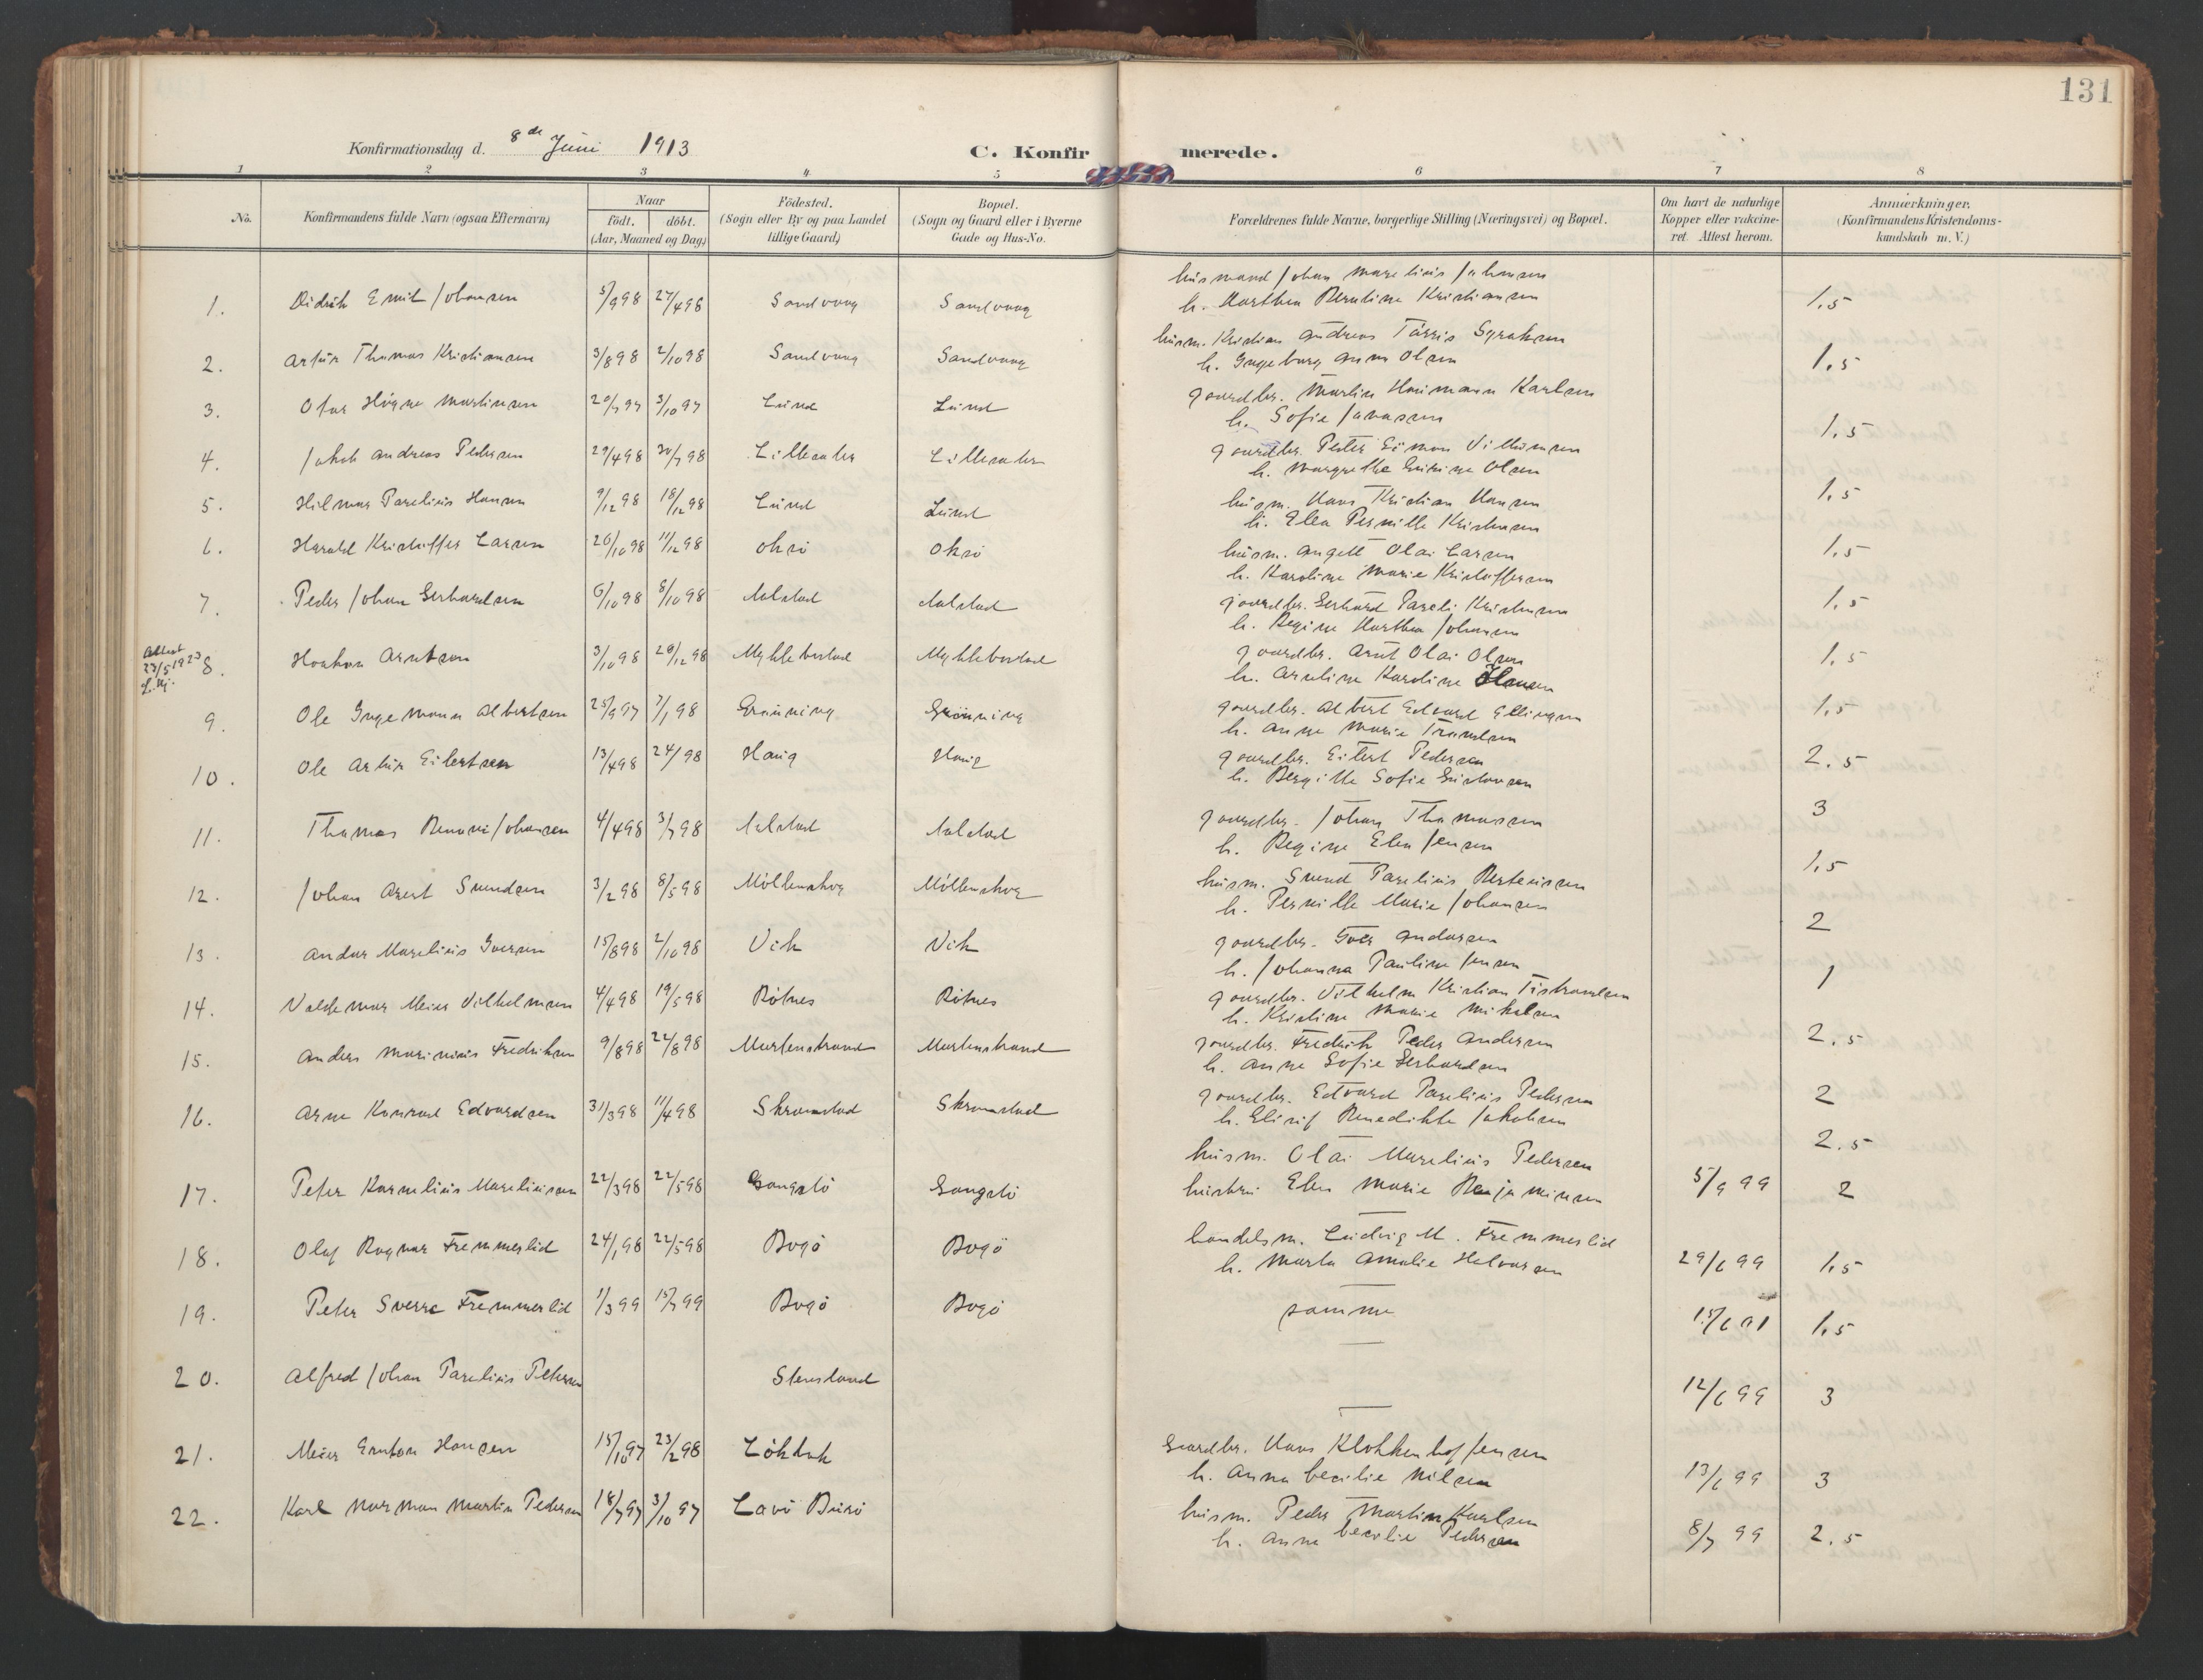 131
Konfirmationsdag d. 8de Juni 1913
C. Konfirmerede.
1 2 3 4 5 6 7 8
No. Konfirmandens fulde Navn (ogsaa Efternavn) Naar födt. döbt. (Aar, Maaned og Dag) Födested. (Sogn eller By og paa Landet tillige Gaard) Bopæl. (Sogn og Gaard eller i Byerne Gade og Hus-No. Forældrenes fulde Navne, borgerlige Stilling (Næringsvei) og Bopæl. Om havt de naturlige Kopper eller vakcineret. Attest herom. Anmærkninger. (Konfirmandens Kristendomskundskab m. V.)
husmand Johan Marelius Johansen
1. Didrik Emil Johansen 5/9 98 27/4 98 Sandvaag Sandvaag h. Marthea Berntine Kristiansen 1,5
husm. Kristian Andreas
2. Artur Thomas Kristiansen 3/8 98 2/10 98 Sandvaag Sandvaag h. Ingeborg Anna Olsen 1,5
gaardbr. Martin Karlsen
3. Otar Högne Martinsen 20/7 97 3/10 97 Lund Lund h. Sofie Jonasen 1,5
gaardbr. Peder Simon
4. Jakob Andreas Pedersen 29/4 98 30/7 98 Lilleaker Lilleaker h. Margrethe Olsen 1,5
husm. Hans Kristian Hansen
5. Hilmar Parelius Hansen 9/12 98 18/12 98 Lund Lund h. Elea Pernille Kristensen 1,5
6. Harald Kristoffer Larsen 26/10 98 11/12 98 Oksö Oksö husm. Angell Olai Larsen
h. Karoline Marie Kristoffersen 1,5
7. Peder Johan Gerhardsen 6/10 98 8/10 98 Aalstad Aalstad gaardbr. Gerhard Pareli Kristensen
h. Regine Marthea Johansen 1,5
Attest 23/5 1923
8. Haakon Arntsen 3/10 98 26/12 98 Myklebostad Myklebostad gaardbr. Arnt Olai Olsen
h. Arntine Karoline Hansen 1,5
9. Ole Ingemann Albertsen 25/9 97 7/1 98 Grönning Grönning gaardbr. Albert Edvard Ellingsen
h. Anne Marie 2.5
10. Ole Artur Eilertsen 13/4 98 24/ 98 Haug Haug gaardbr. Eilert Pedersen
h. Bergitte Sofie 3
11. Thomas Benoni Johansen 4/4 98 3/7 98 Aalstad Aalstad gaardbr. Johan Thomassen
h. Regine Elen Jensen 1,5
12. Johan Arert Svendsen 3/2 98 8/5 98 Möllenskog Möllenskog husm. Svend Parelius Berteusen
h. Pernille Marie Johansen 2
13. Andor Marelius Iversen 15/8 98 2/10 98 Vik Vik gaardbr. Iver Andersen
h. Johanna Pauline Jensen 1
14. Valdemar Meier Vilhelmsen 4/4 98 19/5 98 Rötnes Rötnes gaardbr. Vilhelm Kristian
h. Kristine Marie Mikalsen 2,5
15. Anders Marinius Fredriksen 9/8 98 22/8 98 Marhenstrand Marhenstrand gaardbr. Fredrik Peder Andersen
h. Anne Sofie Gerhardsen 2
16. Arne Konrad Edvardsen 31/3 98 11/4 98 Skromstad Skromstad gaardbr. Edvard Parelius Pedersen
h. Elisif Benedikte Jakobsen 2.5
husm. Olai Marelius Pedersen
17. Peter Kornelius Mareliussen 22/3 98 22/5 98 Gangstö Gangstö hustru Elen Marie Benjaminsen 5/9 99 2
handelsm. Ludvig M. Fremmerlid
18. Olaf Ragnar Fremmerlid 24/1 98 22/5 98 Bogö Bogö h. Marta Amalie Halvorsen 29/6 99 1,5
19. Peter Sverre Fremmerlid 1/3 99 15/7 99 Bogö Bogö samme 15/6 01 1,5
20. Alfred Johan Parelius Petersen Stensland 12/6 99 3
21. Meier Evald Hansen 15/10 97 23/2 98 Lökbak Gaardbr. Hans Klokkenhof Jensen
h. Anna Cecilie Nilsen 13/6 99 3
22. Karl Norman Martin Pedersen 18/7 97 3/10 97 Lavö Bursö husm. Peder Martin Karlsen
h. Anna Cecilie Pedersen 8/7 99 2.5